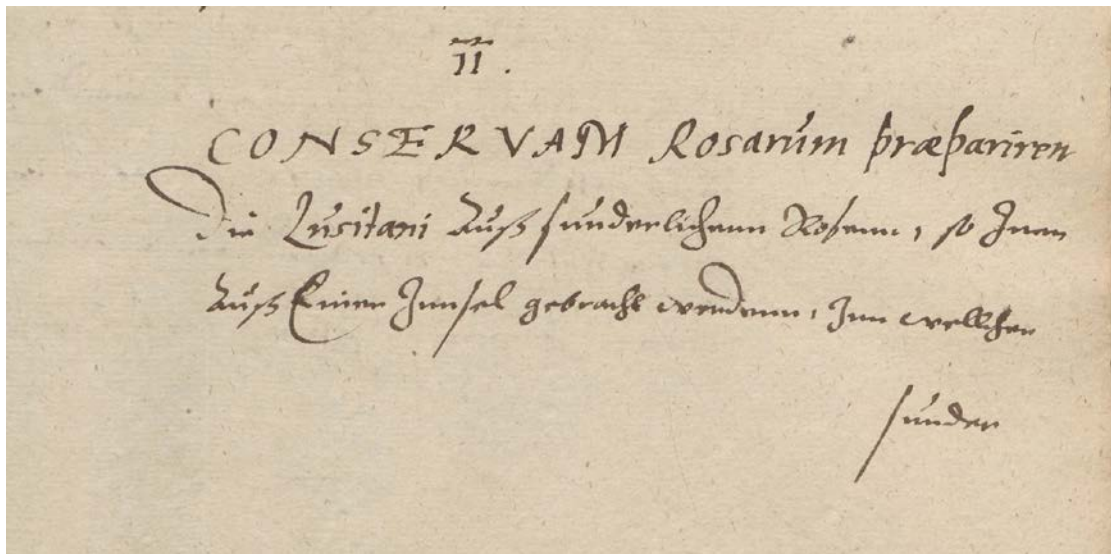 II.
CONSERVAM Rosarum præpariren
Die Lusitani Auß sunderlichenn Rosenn, so Inen
Auß Einer Innsel gebracht werdenn, Inn wellcher
sunder